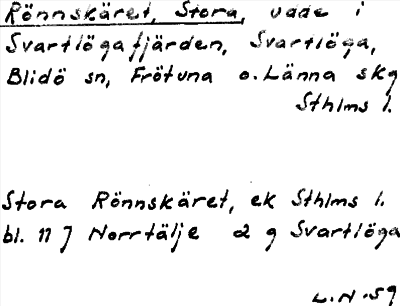 Rönnskäret, Stora, vade i
Svartlögafjärden, Svartlöga,
Blidö sn, Frötuna o. Länna skg
Sthlms l.
Stora Rönnskäret, ek Sthlms l.
bl. 11 J Norrtälje 2 g Svartlöga
L.N.-59